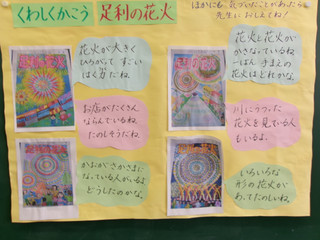 くわしくかこう 足利の花火
ほかにも、気づいたことがあったら
先生におしえてね!
花火が大きく
ひらがって すごい
はく力だね。
お店がたくさん
ならんでいるね。
たのしそうだね。
かおがさかさまに
なっている人がいるよ
どうしたのかな。
花火と花火が
かさなっているね
一ばん手まえの
花火はどれかな。
川にうつった
花火を見ている人
もいるよ。
いろいろな
形の花火が
あってたのしいね。